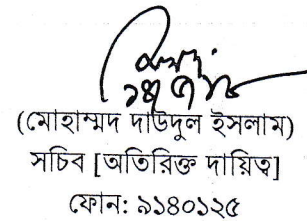 (মোহাম্মদ দাউদুল ইসলাম)
সচিব [অতিরিক্ত দায়িত্ব]
ফোন: ৯১৪০১২৫